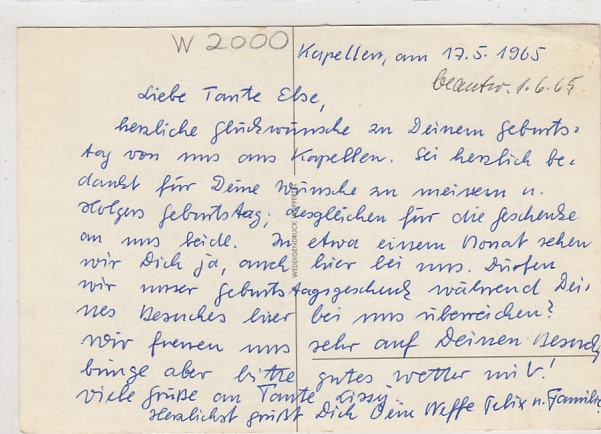 W 2000
Kapellen, am 17.5.1965
beantw. 1.6.65
Liebe Tante Else,
herzliche Glückwünsche zu Deinem Geburts-
tag von uns aus Kapellen. Sei herzlich be-
dankt für Deine Wünsche zu meinem u.
Holgers Geburtstag; desgleichen für die Geschenke
an uns beide. In etwa einem Monat sehen
wir Dich ja, auch hier bei uns. Dürfen
wir unser Geburtstagsgeschenk während Dei-
nes Besuches hier bei uns überreichen?
Wir freuen uns sehr auf Deinen Besuch,
bringe aber bitte gutes Wetter mit!
Viele Grüße an Tante Lissy.
Herzlichst grüßt Dich Dein Neffe Felix u. Familie.
WEDDIGENDRUCK